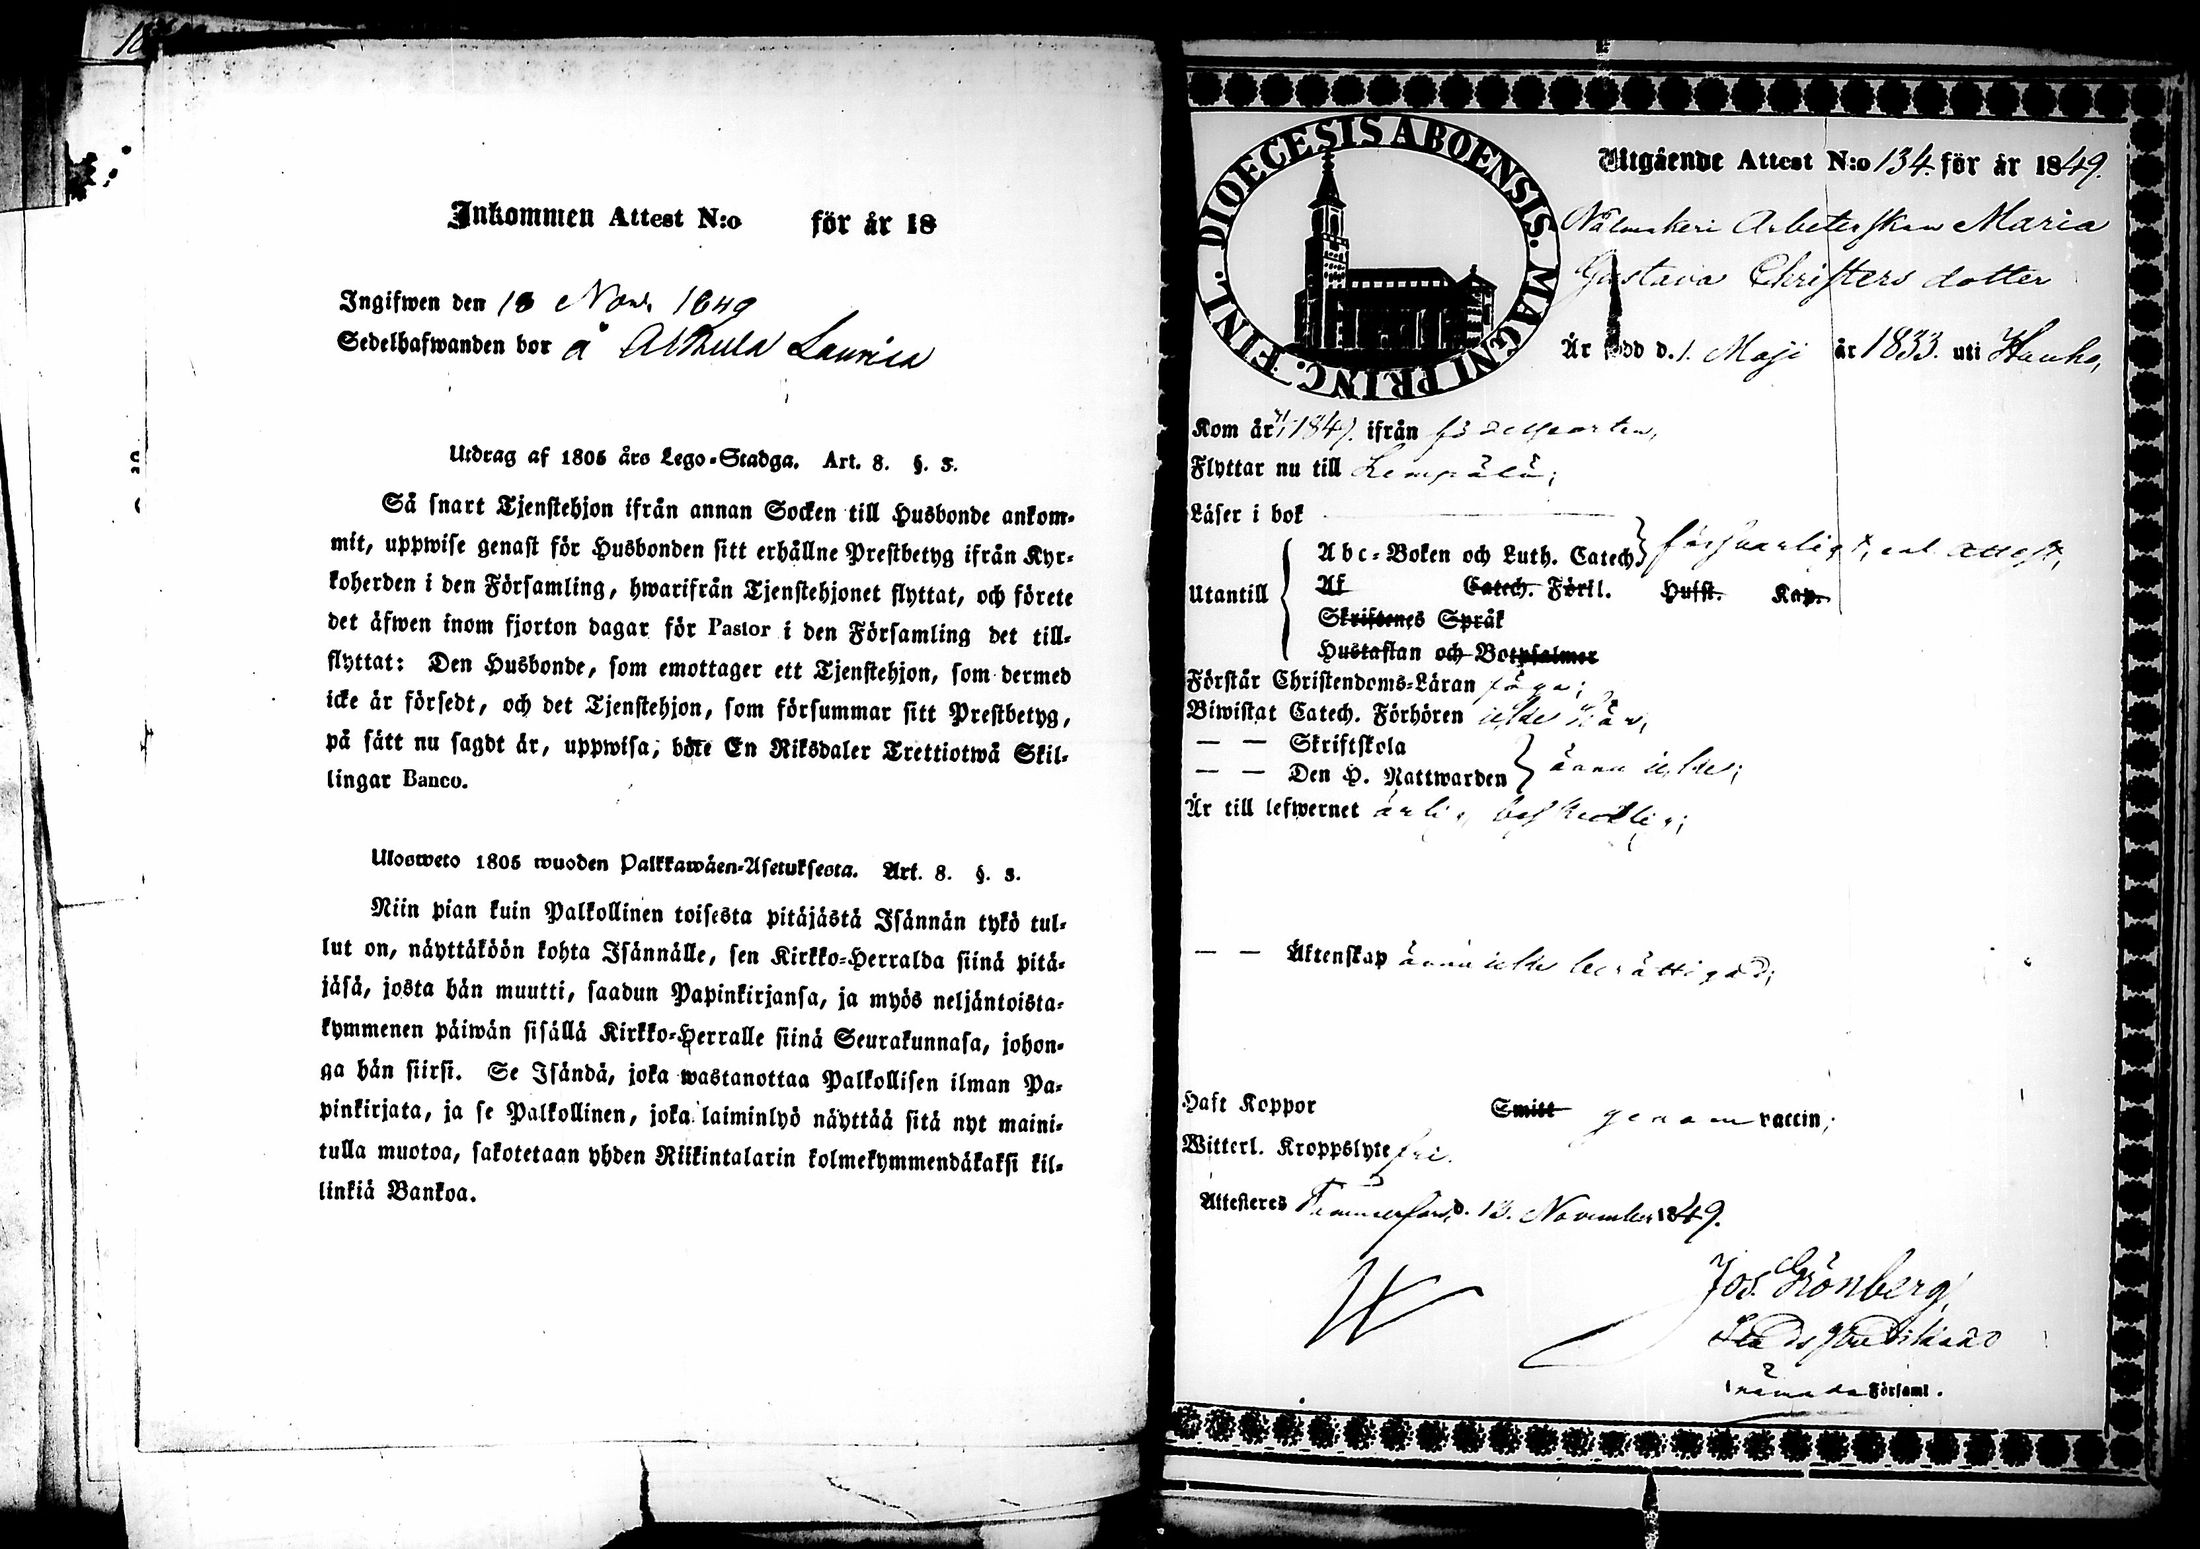 Inkommen Attest N:o för år 18
Ingifwen den 18 Nov. 1849
Sedelhafwanden bor å Alkula Laurila
Utdrag af 1805 års Lego-Stadga. Art. 8. §. 3.
Så snart Tjenstehjon ifrån annan Socken till Husbonde ankom-
mit, uppwise genast för Husbonden sitt erhållne Prestbetyg ifrån Kyr-
koherden i den Församling, hwarifrån Tjenstehjonet flyttat, och förete
det äfwen inom fjorton dagar för Pastor i den Församling det till-
flyttat: Den Husbonde, som emottager ett Tjenstehjon, som dermed
icke är försedt, och det Tjenstehjon, som försummar sitt Prestbetyg,
på sätt nu sagdt är, uppwisa, böte En Riksdaler Trettiotwå Skil-
lingar Banco.
Ulosweto 1805 wuoden Palkkawäen-Asetuksesta. Art. 8. §. 3.
Niin pian kuin Palkollinen toisesta pitäjästä Isännän tykö tul-
lut on, näyttäköön kohta Isännälle, sen Kirkko-Herralda siinä pitä-
jäsä, josta hän muutti, saadun Papinkirjansa, ja myös neljäntoista-
kymmenen päiwän sisällä Kirkko-Herralle siinä Seurakunnasa, johon-
ga hän siirsi. Se Isändä, joka wastanottaa Palkollisen ilman Pa-
pinkirjata, ja se Palkollinen, joka laiminlyö näyttää sitä nyt maini-
tulla muotoa, sakotetaan yhden Riikintalarin kolmekymmendäkaksi kil-
linkiä Bankoa.
DIOECESIS ABOENSIS. MAGNI PRINC. FINL.
Utgående Attest N:o 134. för år 1849.
Nålmakeri Arbeterskan Maria
Gustava Christers dotter
Är född d. 1. Maji år 1833. uti Hauho,
Kom år 1849. ifrån födelseorten,
Flyttar nu till Lempälä;
Läser i bok
Abc-Boken och Luth. Catech. försvarligt, enl. attest,
Utantill Af Catech. Förkl. Hufst. Kap.
Skriftenes Språk
Hustaflan och Botpsalmer
Förstår Christendoms-Läran föga;
Biwistat Catech. Förhören icke här,
— — Skriftskola
— — Den H. Nattwarden ännu icke;
Är till lefwernet ärlig, beskedlig;
— — Äktenskap ännu icke berättigad;
Haft Koppor Smitt genom vaccin;
Witterl. Kroppslyte fri.
Attesteres Tammerfors, d. 13. November 1849.
Jos. Grönberg,
Församl.